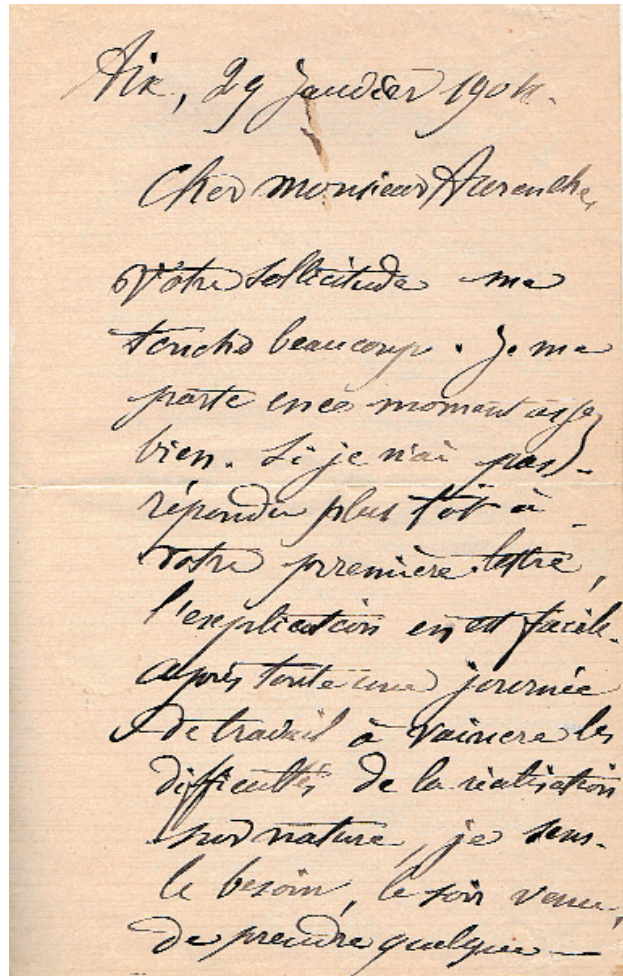 Aix, 29 janvier 1904.
Cher monsieur Aurenche,
Votre sollicitude me
touche beaucoup. Je me
porte en ce moment assez
bien. Si je n'ai pas
répondu plus tôt à
votre première lettre,
l'explication en est facile.
après toute une journée
de travail à vaincre les
difficultés de la réalisation
sur nature, je sens
le besoin, le soir venu,
de prendre quelque